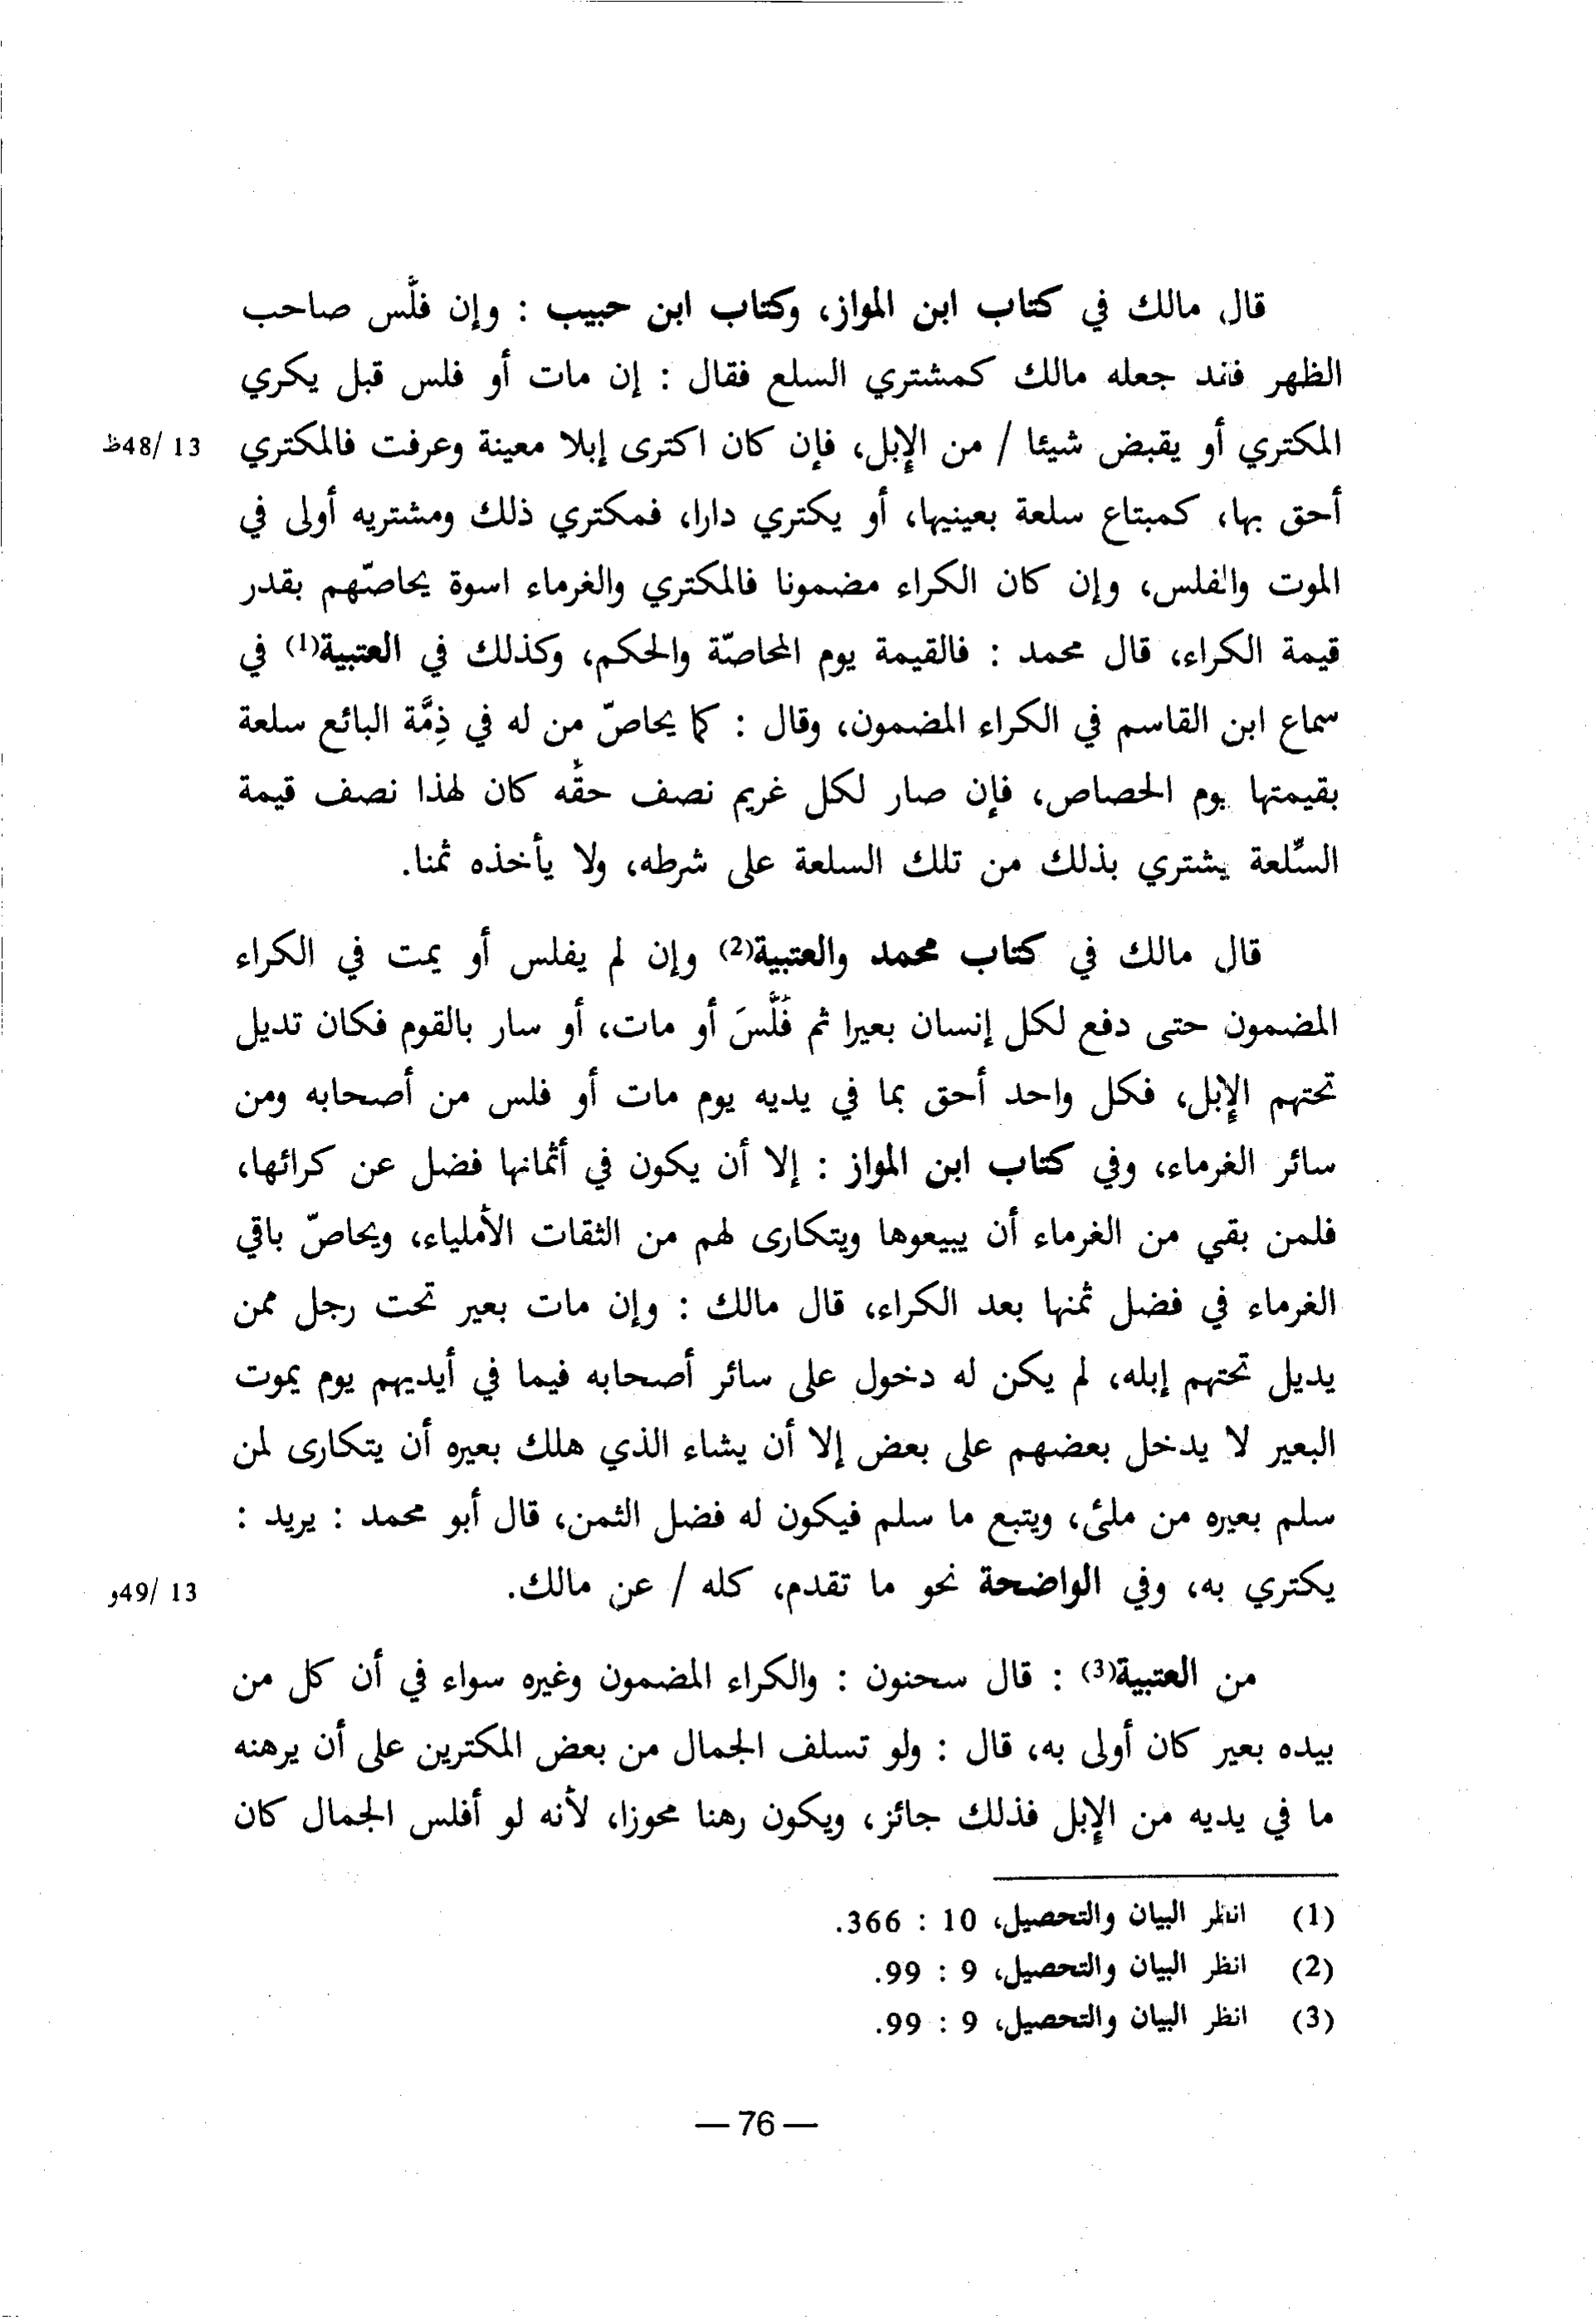 قال مالك في كتاب ابن المواز، وكتاب ابن حبيب : وإن فلَّس صاحب
الظهر فقد جعله مالك كمشتري السلع فقال : إن مات أو فلس قبل يكري
المكتري أو يقبض شيئا / من الإبل، فإن كان اكترى إبلا معينة وعرفت فالمكتري 13 /48ظ
أحق بها، كمبتاع سلعة بعينيها، أو يكتري دارا، فمكتري ذلك ومشتريه أولى في
الموت والفلس، وإن كان الكراء مضمونا فالمكتري والغرماء اسوة يحاصّهم بقدر
قيمة الكراء، قال محمد : فالقيمة يوم المحاصّة والحكم، وكذلك في العتبية(1) في
سماع ابن القاسم في الكراء المضمون، وقال : كما يحاصّ من له في ذِمَّة البائع سلعة
بقيمتها يوم الحصاص، فإن صار لكل غريم نصف حقّه كان لهذا نصف قيمة
السِّلعة يشتري بذلك من تلك السلعة على شرطه، ولا يأخذه ثمنا.
قال مالك في كتاب محمد والعتبية(2) وإن لم يفلس أو يمت في الكراء
المضمون حتى دفع لكل إنسان بعيرا ثم فَلَّسَ أو مات، أو سار بالقوم فكان تديل
تحتهم الإبل، فكل واحد أحق بما في يديه يوم مات أو فلس من أصحابه ومن
سائر الغرماء، وفي كتاب ابن المواز : إلا أن يكون في أثمانها فضل عن كرائها،
فلمن بقي من الغرماء أن يبيعوها ويتكارى لهم من الثقات الأملياء، ويحاصّ باقي
الغرماء في فضل ثمنها بعد الكراء، قال مالك : وإن مات بعير تحت رجل ممن
يديل تحتهم إبله، لم يكن له دخول على سائر أصحابه فيما في أيديهم يوم يموت
البعير لا يدخل بعضهم على بعض إلا أن يشاء الذي هلك بعيره أن يتكارى لمن
سلم بعيره من ملئ، ويتبع ما سلم فيكون له فضل الثمن، قال أبو محمد : يريد :
يكتري به، وفي الواضحة نحو ما تقدم، كله / عن مالك. 13 /49و
من العتبية(3) : قال سحنون : والكراء المضمون وغيره سواء في أن كل من
بيده بعير كان أولى به، قال : ولو تسلف الجمال من بعض المكترين على أن يرهنه
ما في يديه من الإبل فذلك جائز، ويكون رهنا محوزا، لأنه لو أفلس الجمال كان
(1) انظر البيان والتحصيل، 10 : 366.
(2) انظر البيان والتحصيل، 9 : 99.
(3) انظر البيان والتحصيل، 9 : 99.
— 76 —